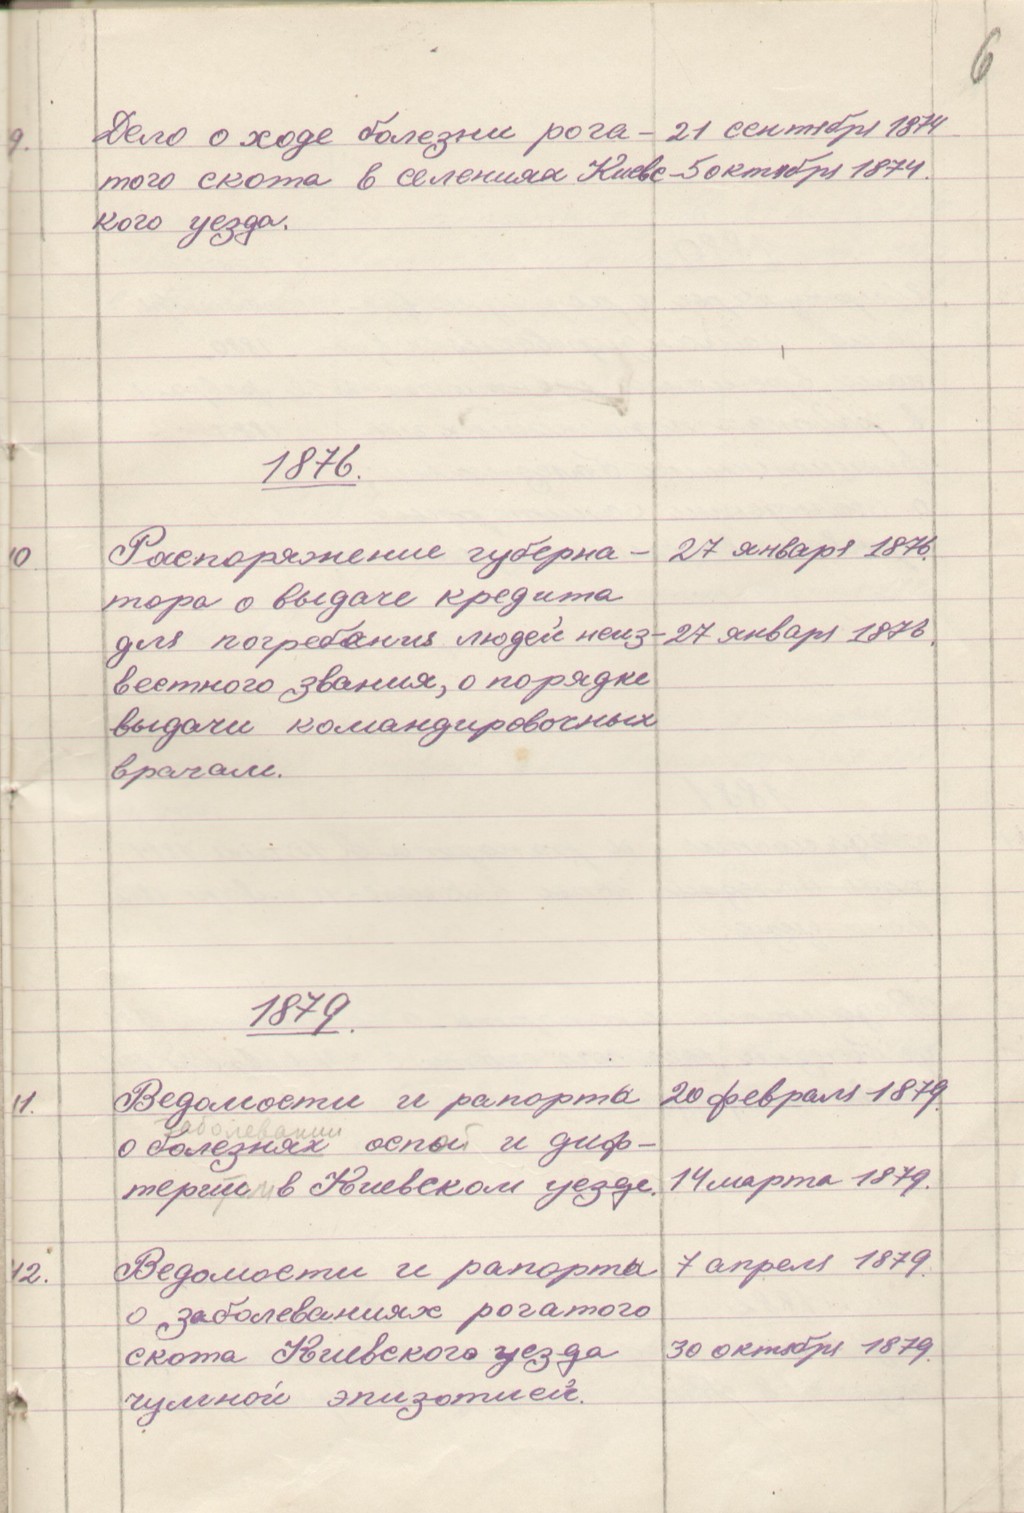 6
9. Дело о ходе болезни рога- 21 сентября 1874
того скота в селениях Киевс- 5 октября 1874.
кого уезда.
1876.
10 Распоряжение губерна- 27 января 1876.
тора о выдаче кредита
для погребания людей неиз- 27 января 1876.
вестного звания, о порядке
выдачи командировочных
врачам.
1879.
11. Ведомости и рапорта 20 февраля 1879.
заболевании
о болезнях оспой и диф-
терии в Киевском уезде. 14 марта 1879.
12. Ведомости и рапорта 7 апреля 1879.
о заболеваниях рогатого
скота Киевского уезда 30 октября 1879.
чумной эпизотией.